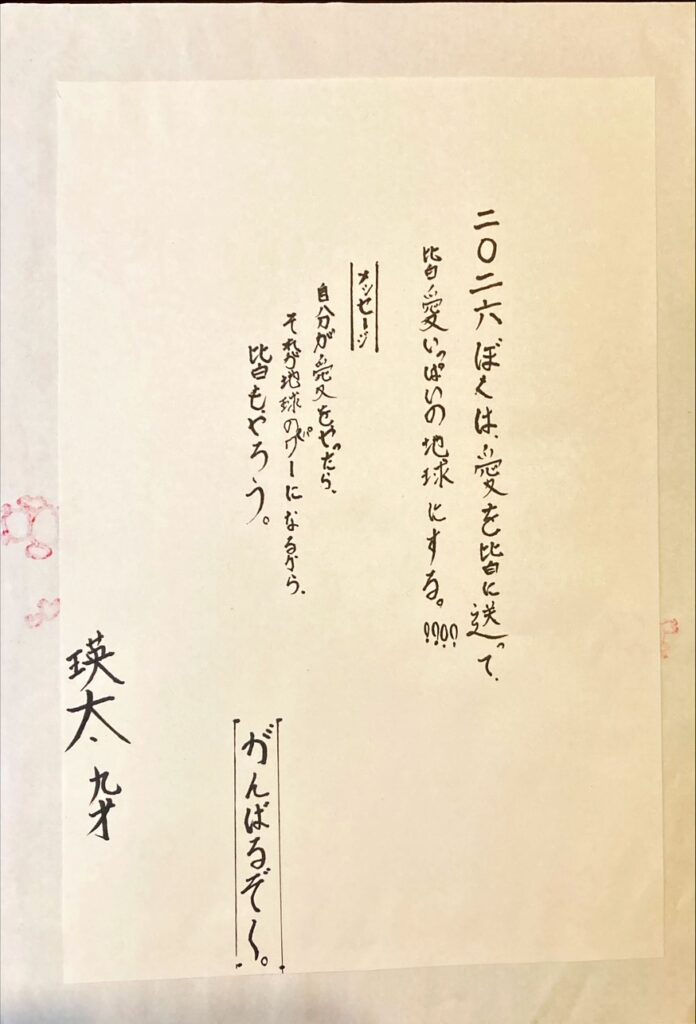 二〇二六ぼくは、愛を皆に送って、
皆愛いっぱいの地球にする。!?!?!?
メッセージ
自分が愛をやったら、
それが地球のパワーになるから、
皆もやろう。
がんばるぞ〜。
瑛太、九才